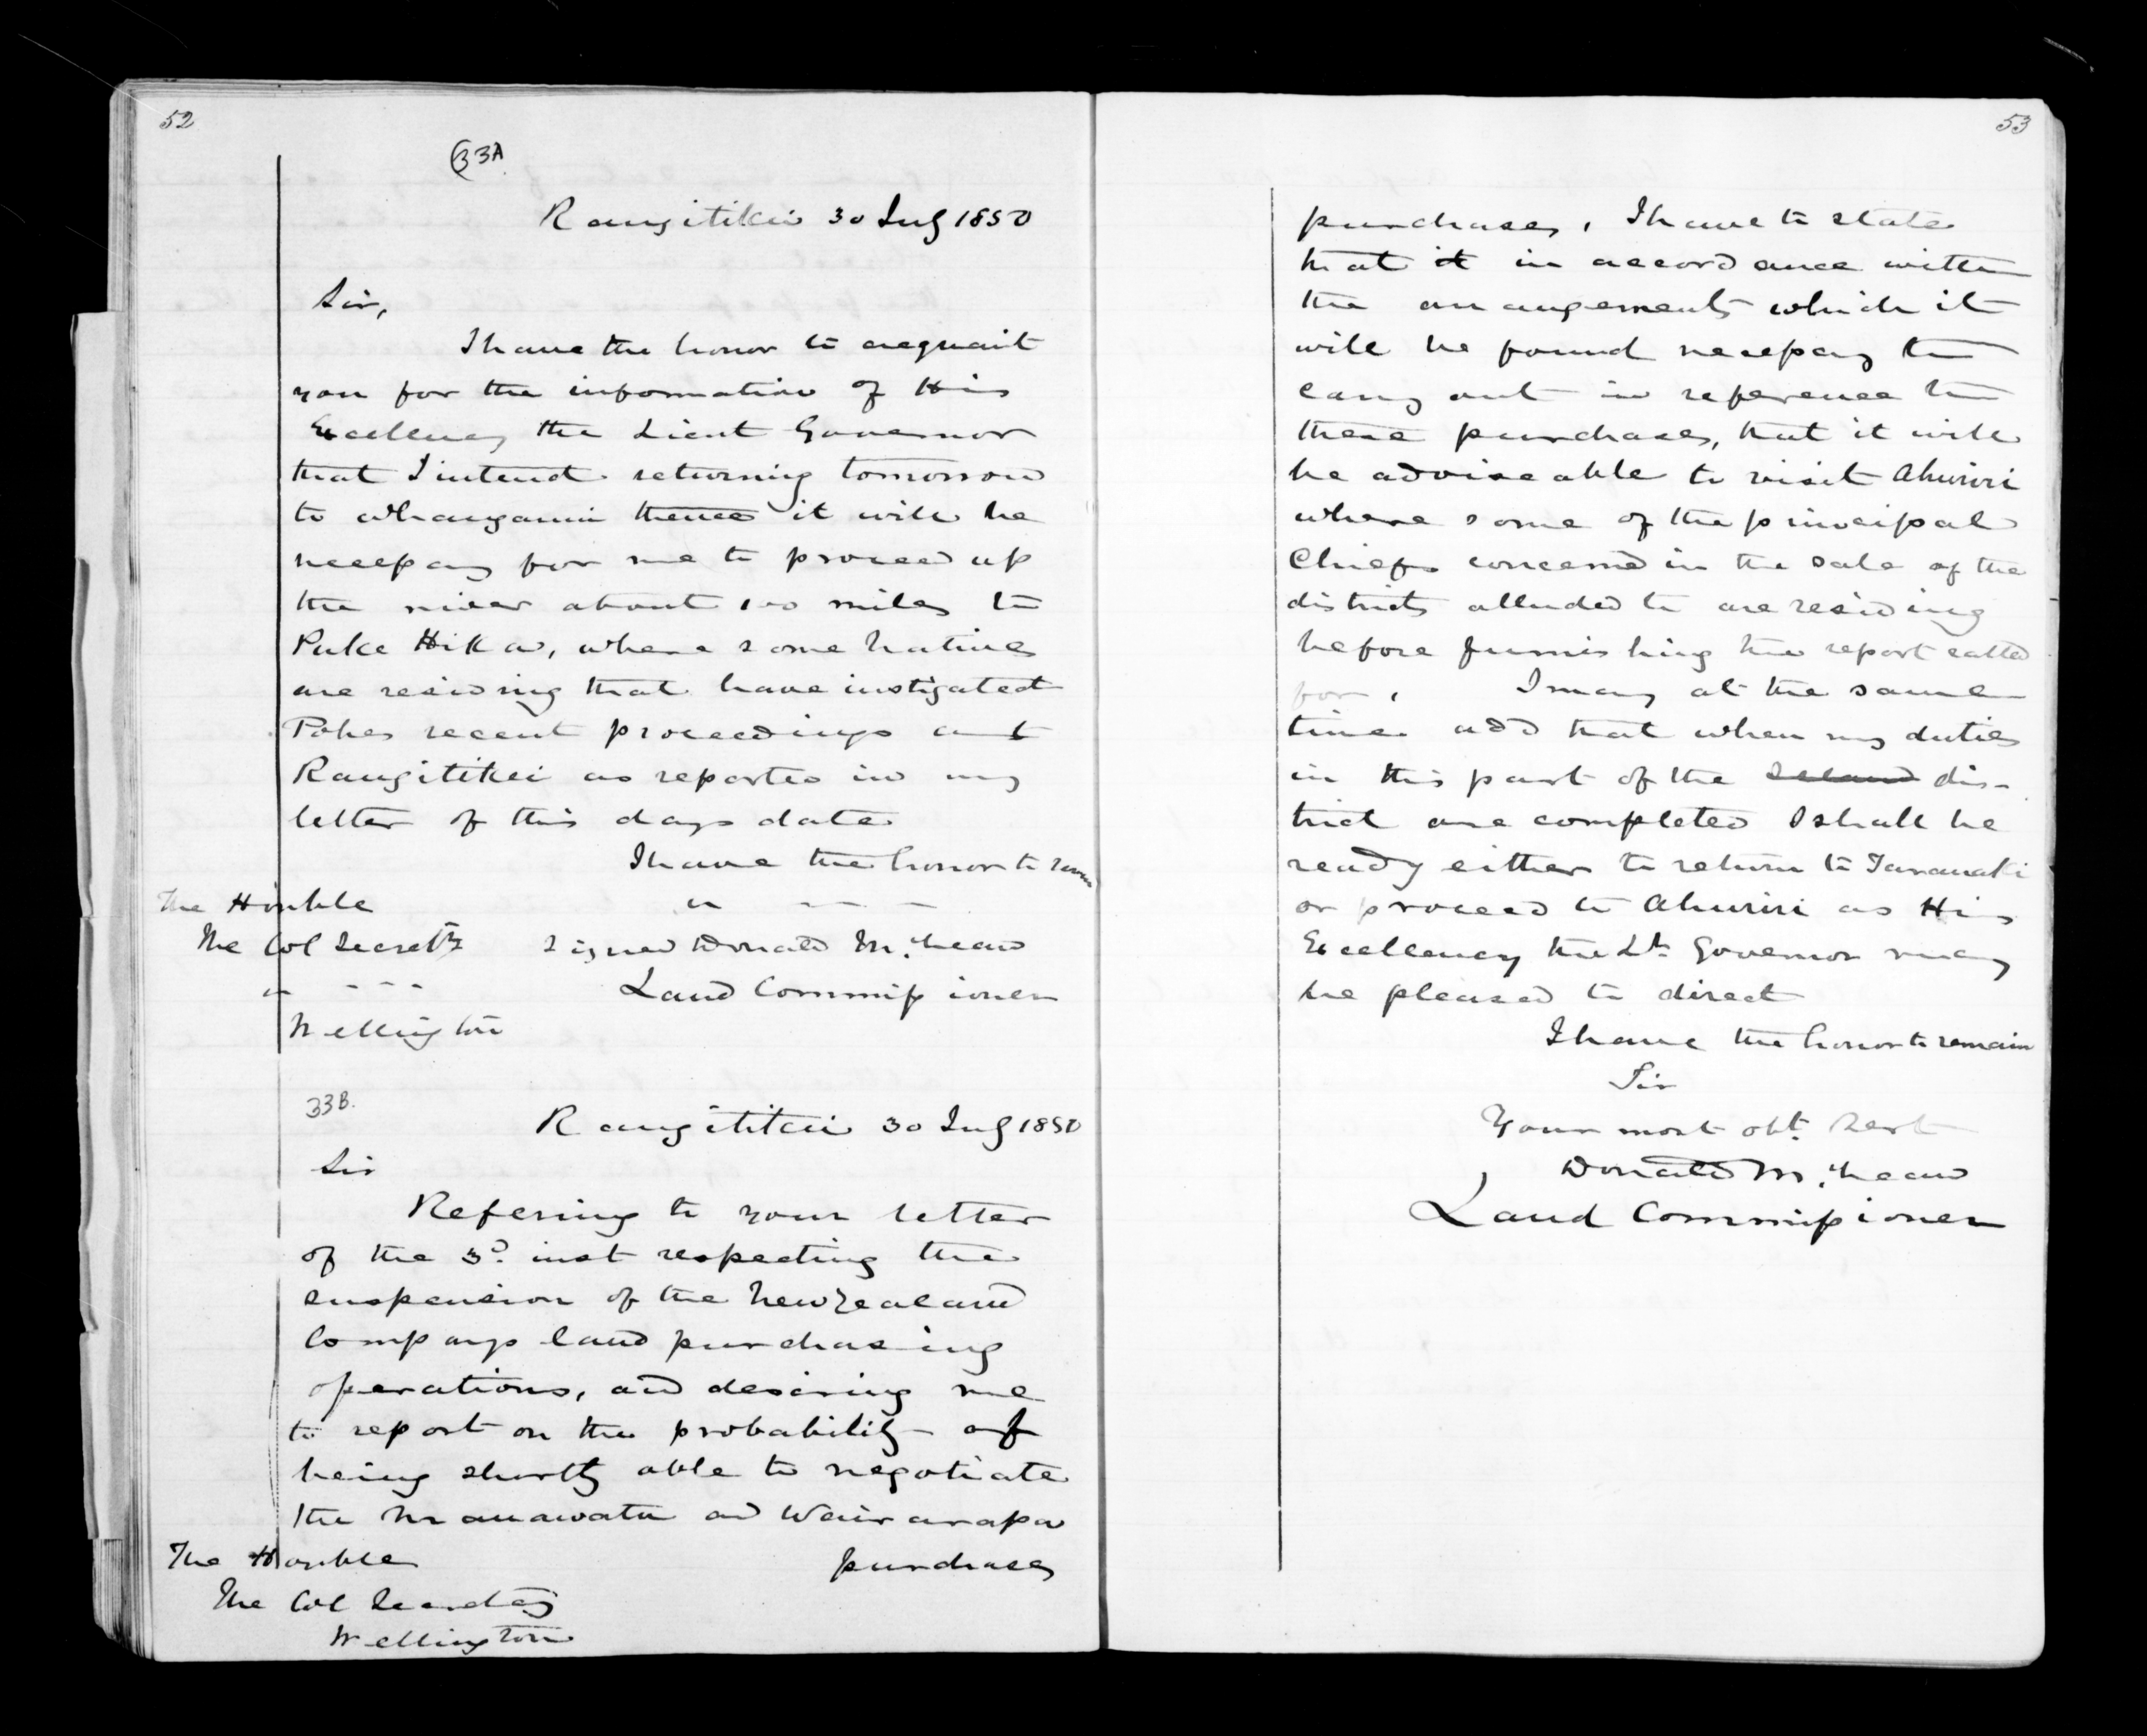 52
33A
Rangitikei 30 July 1850
Sir,
I have the honor to acquaint
you for the information of His
Excellency the Lieut Governor
that I intend returning tomorrow
to Whanganui thence it will be
necessary for me to proceed up
the river about 100 miles to
Puke Hika, where some natives
are residing that have instigated
Pohes recent proceedings at
Rangitikei as reported in my
letter of this days date
I have the honor to remain
The Honble
The Col Secrety Signed Donald McLean
Land Commissioner
Wellington
33B.
Rangitikei 30 July 1850
Sir
Refering to your letter
of the 3d. inst respecting the
suspension of the New Zealand
Companys land purchasing
operations, and desiring me
to report on the probability of
being shortly able to negotiate
the Manawatu and Wairarapa
The Honble purchases
The Col Secretary
Wellington
53
purchases, I have to state
that it in accordance with
the arrangements which it
will be found necessary to
carry out in reference to
these purchases, that it will
be adviseable to visit Ahuriri
where some of the principal
Chiefs concerned in the sale of the
districts alluded to are residing
before furnishing the report called
for, I may at the same
time add that when my duties
in this part of the Island dis-
trict are completed I shall be
ready either to return to Taranaki
or proceed to Ahuriri as His
Excellency the Lt. Governor may
be pleased to direct
I have the honor to remain
Sir
Your most obt. Servt
Donald McLean
Land Commissioner